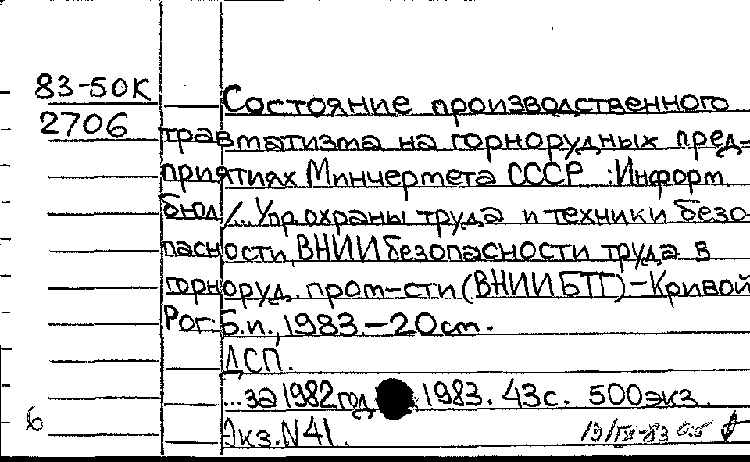 83-50К
2706
Состояние производственного
травматизма на горнорудных пред-
приятиях Минчермета СССР : Информ
бюл /... Упр охраны труда и техники безо-
пасности, ВНИИ безопасности труда в
горноруд. пром-сти (ВНИИБТГ) - Кривой
Рог: Б.и., 1983. - 20 см.
ДСП.
...за 1982 год 1983. 43 с. 500 экз.
Экз. N 41.
6